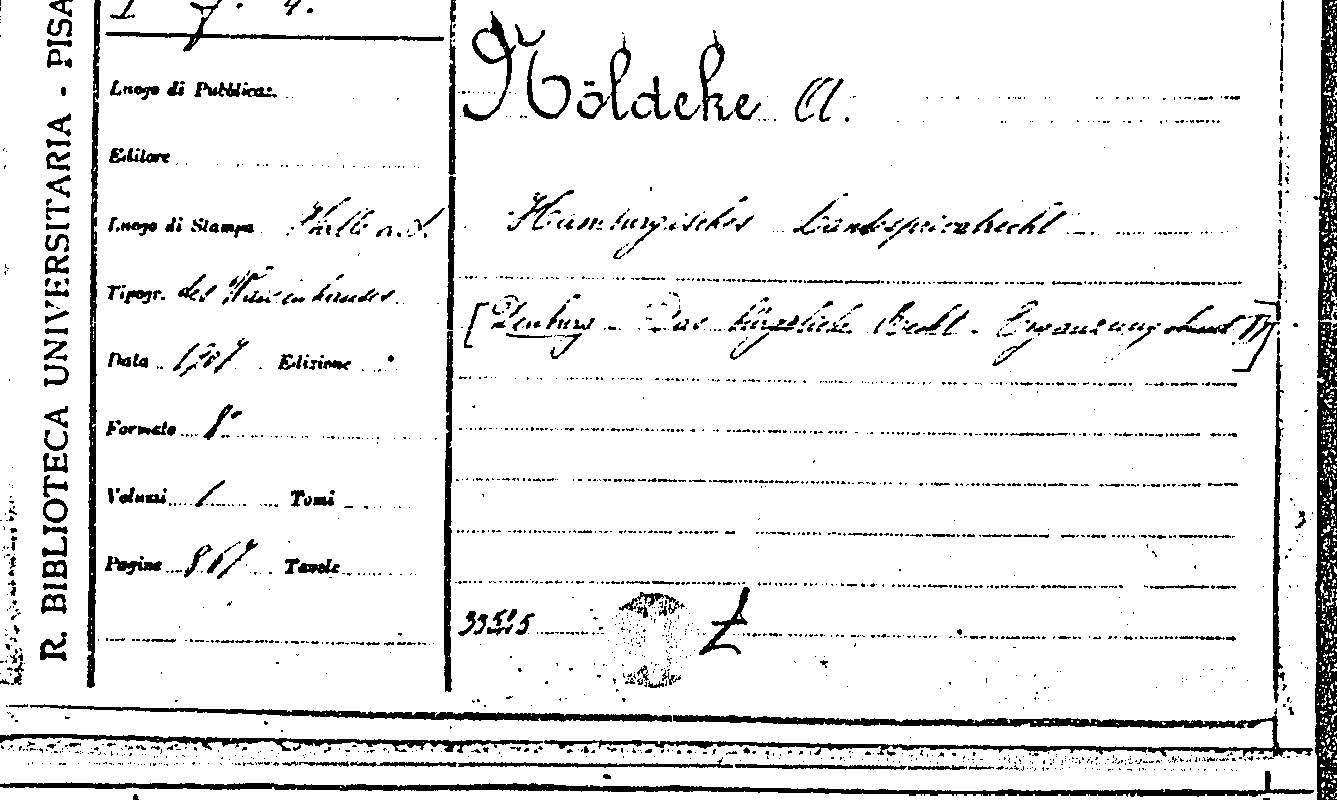 R. BIBLIOTECA UNIVERSITARIA - PISA
Luogo di Pubblicaz.
Editore
Luogo di Stampa Halle a.S.
Tipogr. des Waisenhauses
Data 1907 Edizione
Formato 8°
Volumi 1 Tomi
Pagine 867 Tavole
Nöldeke A.
Hamburgisches Landesprivatrecht
[Dernburg - Das bürgerliche Recht - Ergänzungsband